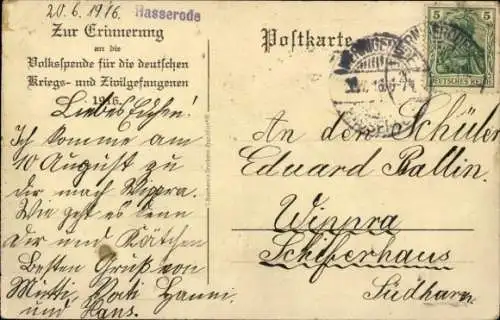 20.6.1916.
Hasserode
Zur Erinnerung
an die
Volksspende für die deutschen
Kriegs- und Zivilgefangenen
1916.
Postkarte
5 5
DEUTSCHES REICH
Liebes
Ich komme am
10 August zu
dir nach Wippra.
Wie geht es denn
dir und Kätchen
Besten Gruß von
Mutti, Vati Hanni
und Hans.
An den Schüler
Eduard Ballin.
Wippra
Schiferhaus
Südharz